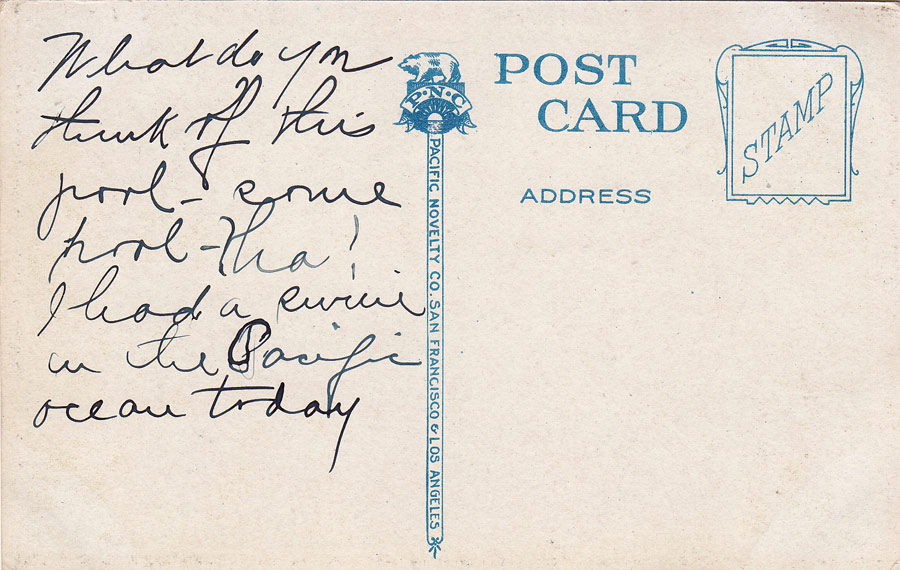 What do you
think of this
pool - some
pool - Ha!
I had a swim
in the Pacific
ocean today
P·N·C
PACIFIC NOVELTY CO. SAN FRANCISCO & LOS ANGELES
POST
CARD
ADDRESS
STAMP